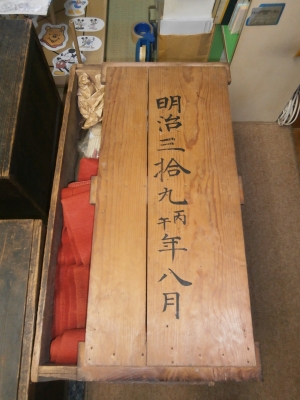 明治三拾九丙午年八月